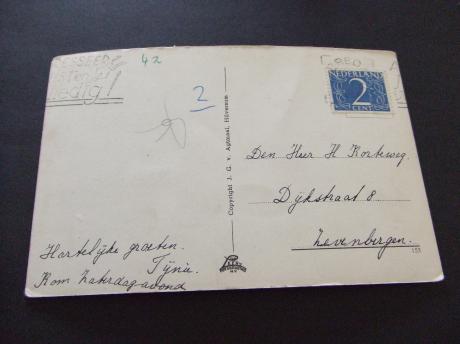 42
2
NEDERLAND
2
CENT
Copyright J. G. v. Agtmaal, Hilversum
Den Heer H Korteweg.
Dijkstraat 8
Zevenbergen.
Hartelijke groeten.
Tijnie.
Kom Zaterdagavond